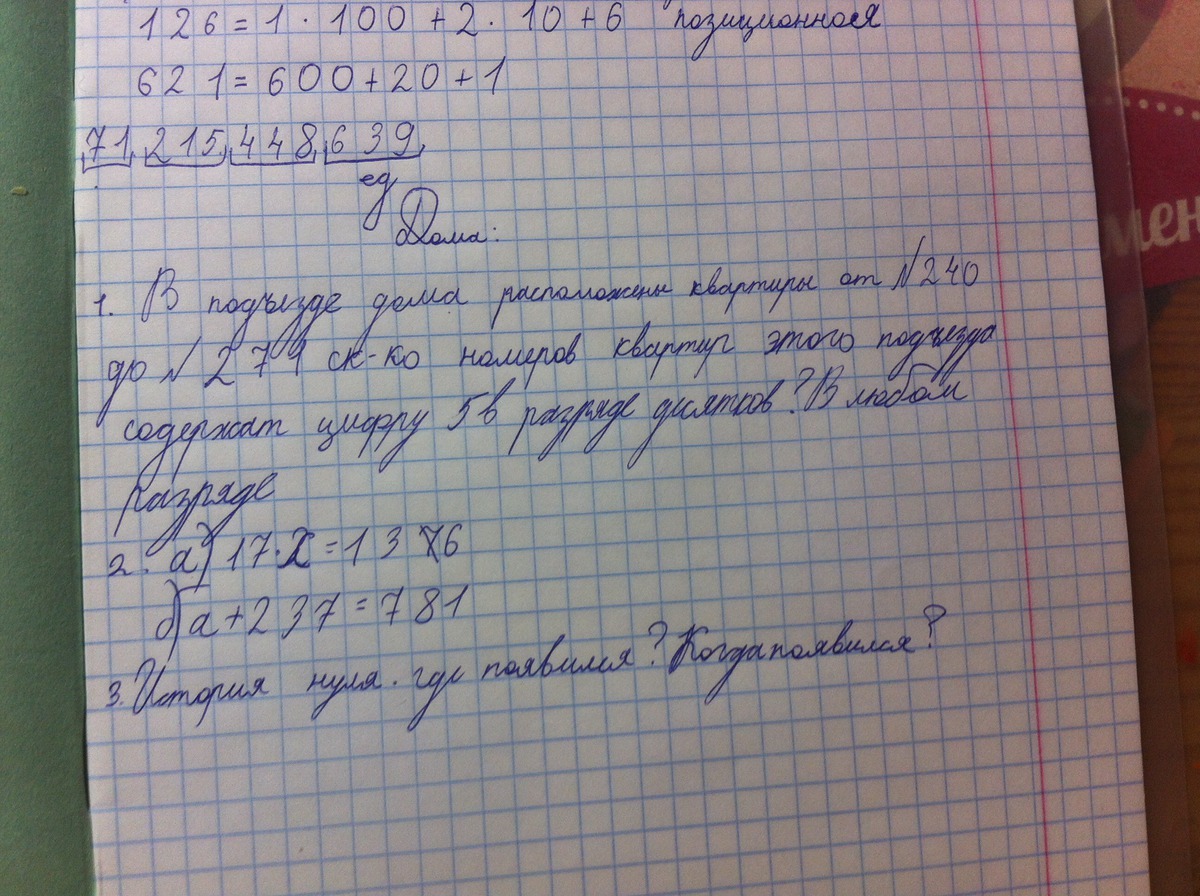 126 = 1 · 100 + 2 · 10 + 6 позиционная
621 = 600 + 20 + 1
71 215 448 639
ед
Дома:
мен
1. В подъезде дома расположены квартиры от №240
до №271 ск-ко номеров квартир этого подъезда
содержат цифру 5 в разряде десятков? В любом
разряде
2. а) 17·x = 1376
б) a + 237 = 781
3. История нуля. где появился? Когда появился?